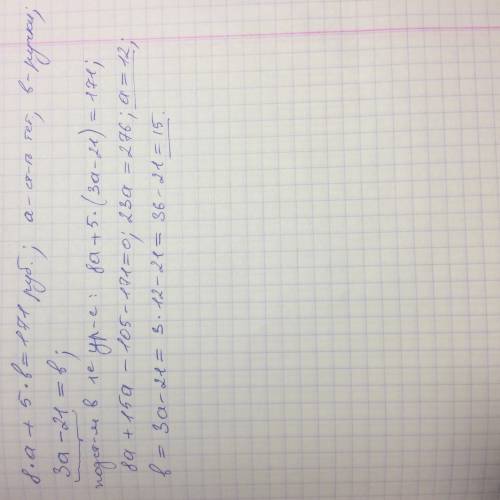 8·a + 5·в = 171 руб.; a - ст-ть тет, в - ручки;
3a - 21 = в;
подст-м в 1е ур-е: 8a + 5·(3a - 21) = 171;
8a + 15a - 105 - 171 = 0; 23a = 276; a = 12;
в = 3a - 21 = 3·12 - 21 = 36 - 21 = 15.